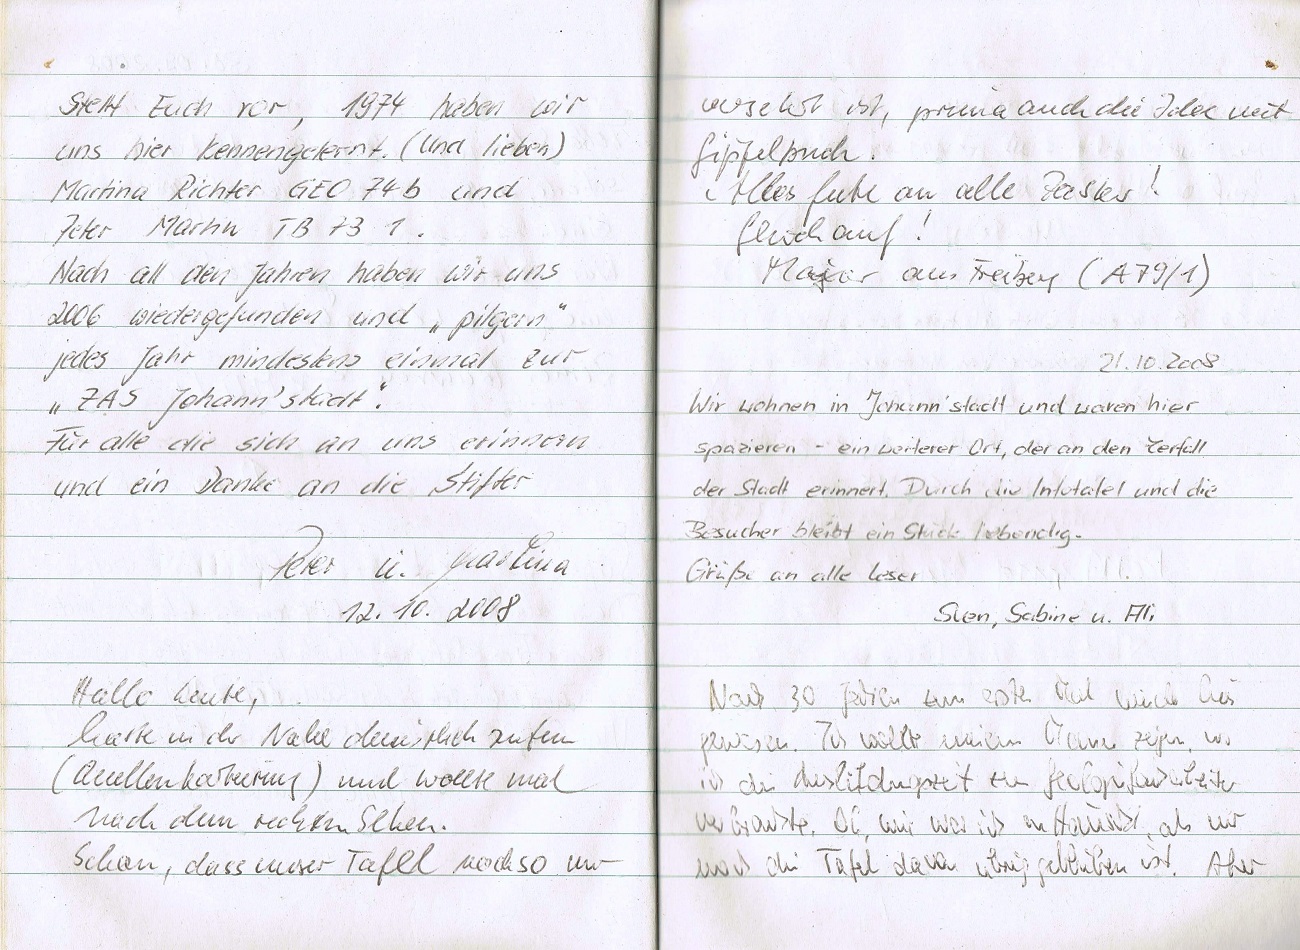 Stellt Euch vor, 1974 haben wir
uns hier kennengelernt. (und lieben)
Martina Richter GEO 74b und
Peter Martin TB 73 1.
Nach all den Jahren haben wir uns
2006 wiedergefunden und „pilgern“
jedes Jahr mindestens einmal zur
„ZAS Johann'stadt“.
Für alle die sich an uns erinnern
und ein Danke an die Stifter
Peter u. Martina
12. 10. 2008
Hallo Leute,
hatte in der Nähe dienstlich zu tun
(Quellenkartierung) und wollte mal
nach dem rechten sehen.
Schön, dass unser Tafel noch so un-
versehrt ist, prima auch die Idee mit
Gipfelbuch.
Alles Gute an alle Zaster!
Glück auf!
Major aus Freiberg (A79/1)
21.10.2008
Wir wohnen in Johann'stadt und waren hier
spazieren - ein weiterer Ort, der an den Zerfall
der Stadt erinnert. Durch die Infotafel und die
Besucher bleibt ein Stück lebendig.
Grüße an alle Leser
Sven, Sabine u. Ali
Nach 30 Jahren zum ersten Mal wieder hier
gewesen. Ich wollte meinem Mann zeigen, wo
ich die Ausbildungszeit zum Geologiefacharbeiter
verbrachte. Oh, wie war ich, als nur
noch die Tafel davon übriggeblieben ist. Aber